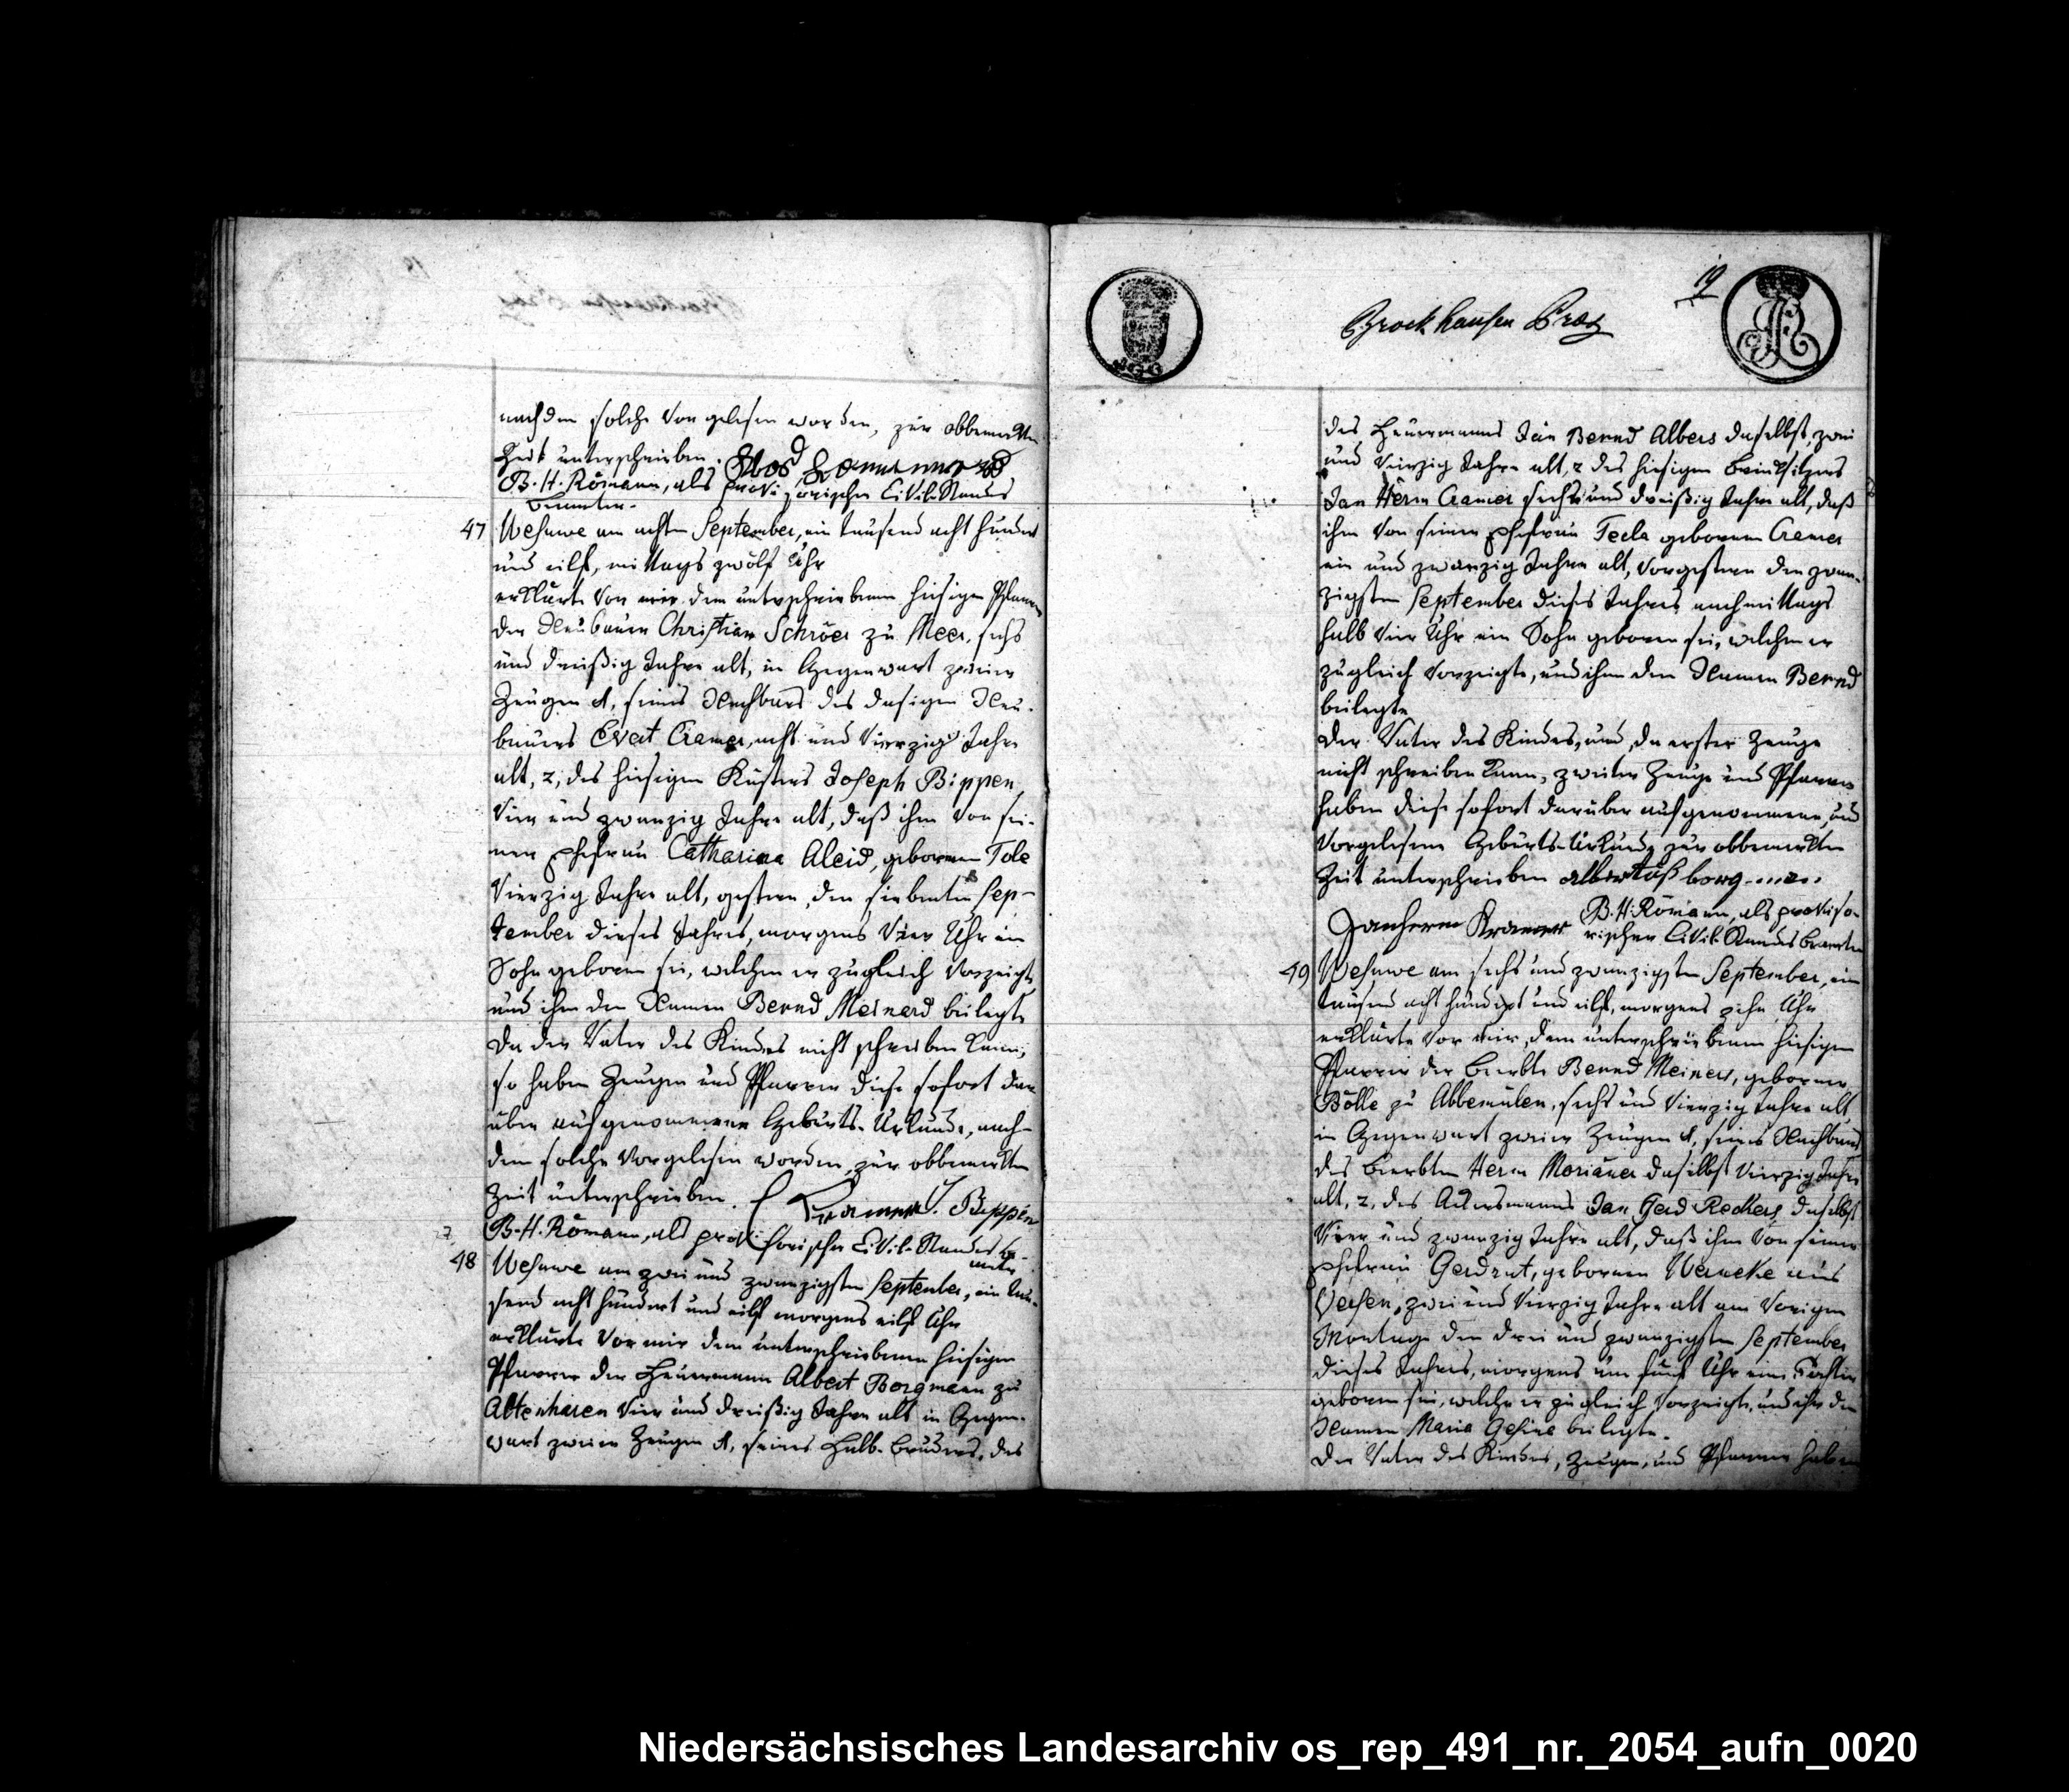 nachdem solche vorgelesen worden, zur obbemerkten
Zeit unterschrieben.
B. H. Römann, als provisorischer Civil-Stands
Beamter.
47 Wesuwe am achten September, ein tausend acht hundert
und eilf, mittags zwölf Uhr
erklärte vor mir dem unterschriebenen hiesigen Pfarrer
der Neubauer Christian Schröer zu Meer, sechs
und dreißig Jahre alt, in Gegenwart zweier
Zeugen 1, seines Nachbars des dasigen Neu-
bauers Evert Cramer, acht und vierzig Jahre
alt, 2, des hiesigen Küsters Joseph Bippen,
vier und zwanzig Jahre alt, daß ihm von sei-
ner Ehefrau Catharina Aleid, gebornen Tole
vierzig Jahre alt, gestern, den siebenten Sep-
tember dieses Jahres, morgens vier Uhr ein
Sohn geboren sei, welchen er zugleich vorzeigte
und ihm den Namen Bernd Meinerd beilegte
Da der Vater des Kindes nicht schreiben kann,
so haben Zeugen und Pfarrer diese sofort dar
über aufgenommene Geburts-Urkunde, nach-
dem solche vorgelesen worden, zur obbemerkten
Zeit unterschrieben. E Kramer J. Beppen
B. H. Römann, als provisorischer Civil-Standes be-
amter
48 Wesuwe am zwei und zwanzigsten September, ein tau-
send acht hundert und eilf morgens eilf Uhr
erklärte vor mir dem unterschriebenen hiesigen
Pfarrer der Heuermann Albert Borgmann zu
Altenharen vier und dreißig Jahre alt in Gegen-
wart zweier Zeugen 1, seines Halb-Bruders, des
19
Brockhausen
des Heuermanns Jan Bernd Albers daselbst, zwei
und vierzig Jahre alt, 2 des hiesigen Brinksitzers
Jan Herm Cramer sechs und dreißig Jahre alt, daß
ihm von seiner Ehefrau Tecla gebornen Cramer
ein und zwanzig Jahre alt, vorgestern den zwan-
zigsten September dieses Jahres nachmittags
halb vier Uhr ein Sohn geboren sei, welchen er
zugleich vorzeigte, und ihm den Namen Bernd
beilegte
Der Vater des Kindes, und, da erster Zeuge
nicht schreiben kann, zweiter Zeuge und Pfarrer
haben diese sofort darüber aufgenommene, und
vorgelesene Geburts-Urkunde zur obbemerkten
Zeit unterschrieben
B. H. Römann, als proviso-
Janherm Kramer rischer Civil-Standes beamter
49 Wesuwe am sechs und zwanzigsten September, ein
tausend acht hundert und eilf, morgens zehn Uhr
erklärte vor mir, dem unterschriebenen hiesigen
Pfarrer der Beerbte Bernd Meiners, geborner
Bölle zu Abbemülen, sechs und vierzig Jahre alt
in Gegenwart zweier Zeugen 1, seines Nachbars
des Beerbten Herm Moriäner daselbst vierzig Jahre
alt, 2, des Ackersmanns Jan Gerd Reckers daselbst
vier und zwanzig Jahre alt, daß ihm von seiner
Ehefrau Gerdrut, gebornen Werneke aus
Versen, zwei und vierzig Jahre alt am vorigen
Montage den drei und zwanzigsten September
dieses Jahres, morgens um fünf Uhr eine Tochter
geboren sei, welche er zugleich vorzeigte, und ihr den
Namen Maria Gesina beilegte.
Der Vater des Kindes, Zeugen, und Pfarrer haben
Niedersächsisches Landesarchiv os_rep_491_nr._2054_aufn_0020